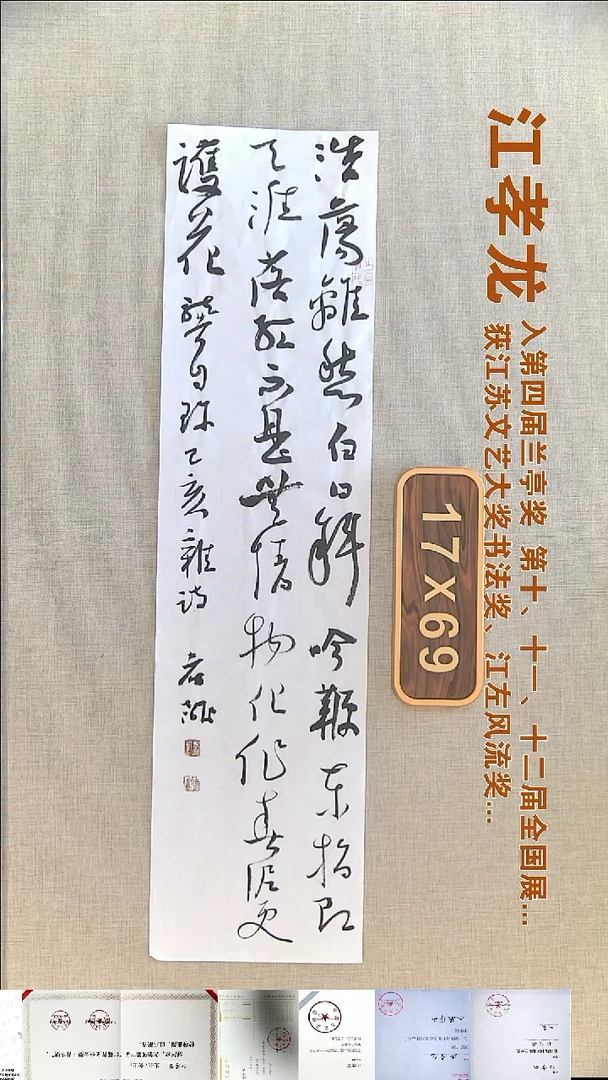 江孝龙
入第四届兰亭奖 第十、十一、十二届全国展...
获江苏文艺大奖书法奖、江左风流奖...
17x69
浩蕩離愁白日斜吟鞭東指即
天涯落紅不是無情物化作春泥更
護花 龔自珍乙亥雜詩 孝龍